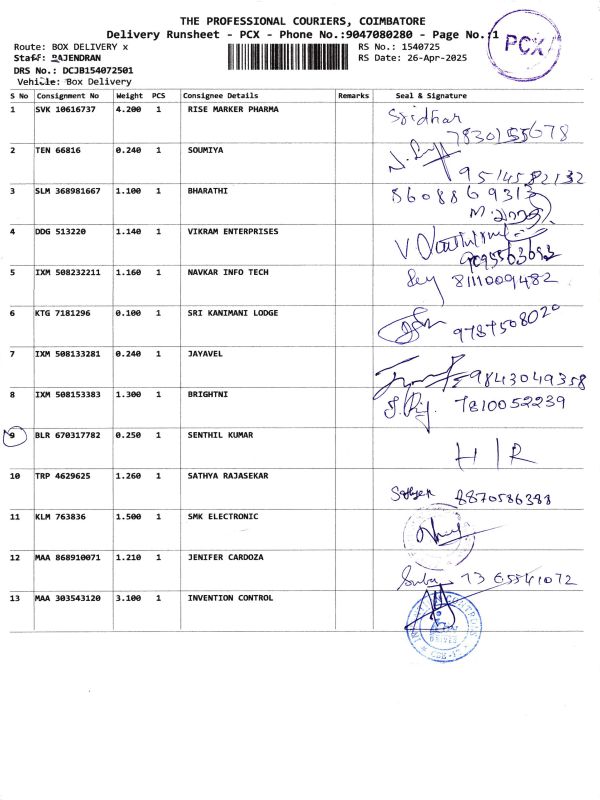 THE PROFESSIONAL COURIERS, COIMBATORE
Delivery Runsheet - PCX - Phone No.:9047080280 - Page No.:1
PCX
Route: BOX DELIVERY x
RS No.: 1540725
Staff: RAJENDRAN
RS Date: 26-Apr-2025
DRS No.: DCJB154072501
Vehicle: Box Delivery
S No Consignment No Weight PCS Consignee Details Remarks Seal & Signature
1 SVK 10616737 4.200 1 RISE MARKER PHARMA Sridhar
7830155678
2 TEN 66816 0.240 1 SOUMIYA
9514582132
3 SLM 368981667 1.100 1 BHARATHI 8608869313
4 DDG 513220 1.140 1 VIKRAM ENTERPRISES
5 IXM 508232211 1.160 1 NAVKAR INFO TECH 8111009482
6 KTG 7181296 0.100 1 SRI KANIMANI LODGE 9787508020
7 IXM 508133281 0.240 1 JAYAVEL 9843049358
8 IXM 508153383 1.300 1 BRIGHTNI 7810052239
9 BLR 670317782 0.250 1 SENTHIL KUMAR H/R
10 TRP 4629625 1.260 1 SATHYA RAJASEKAR 8870586388
11 KLM 763836 1.500 1 SMK ELECTRONIC
12 MAA 868910071 1.210 1 JENIFER CARDOZA
13 MAA 303543120 3.100 1 INVENTION CONTROL